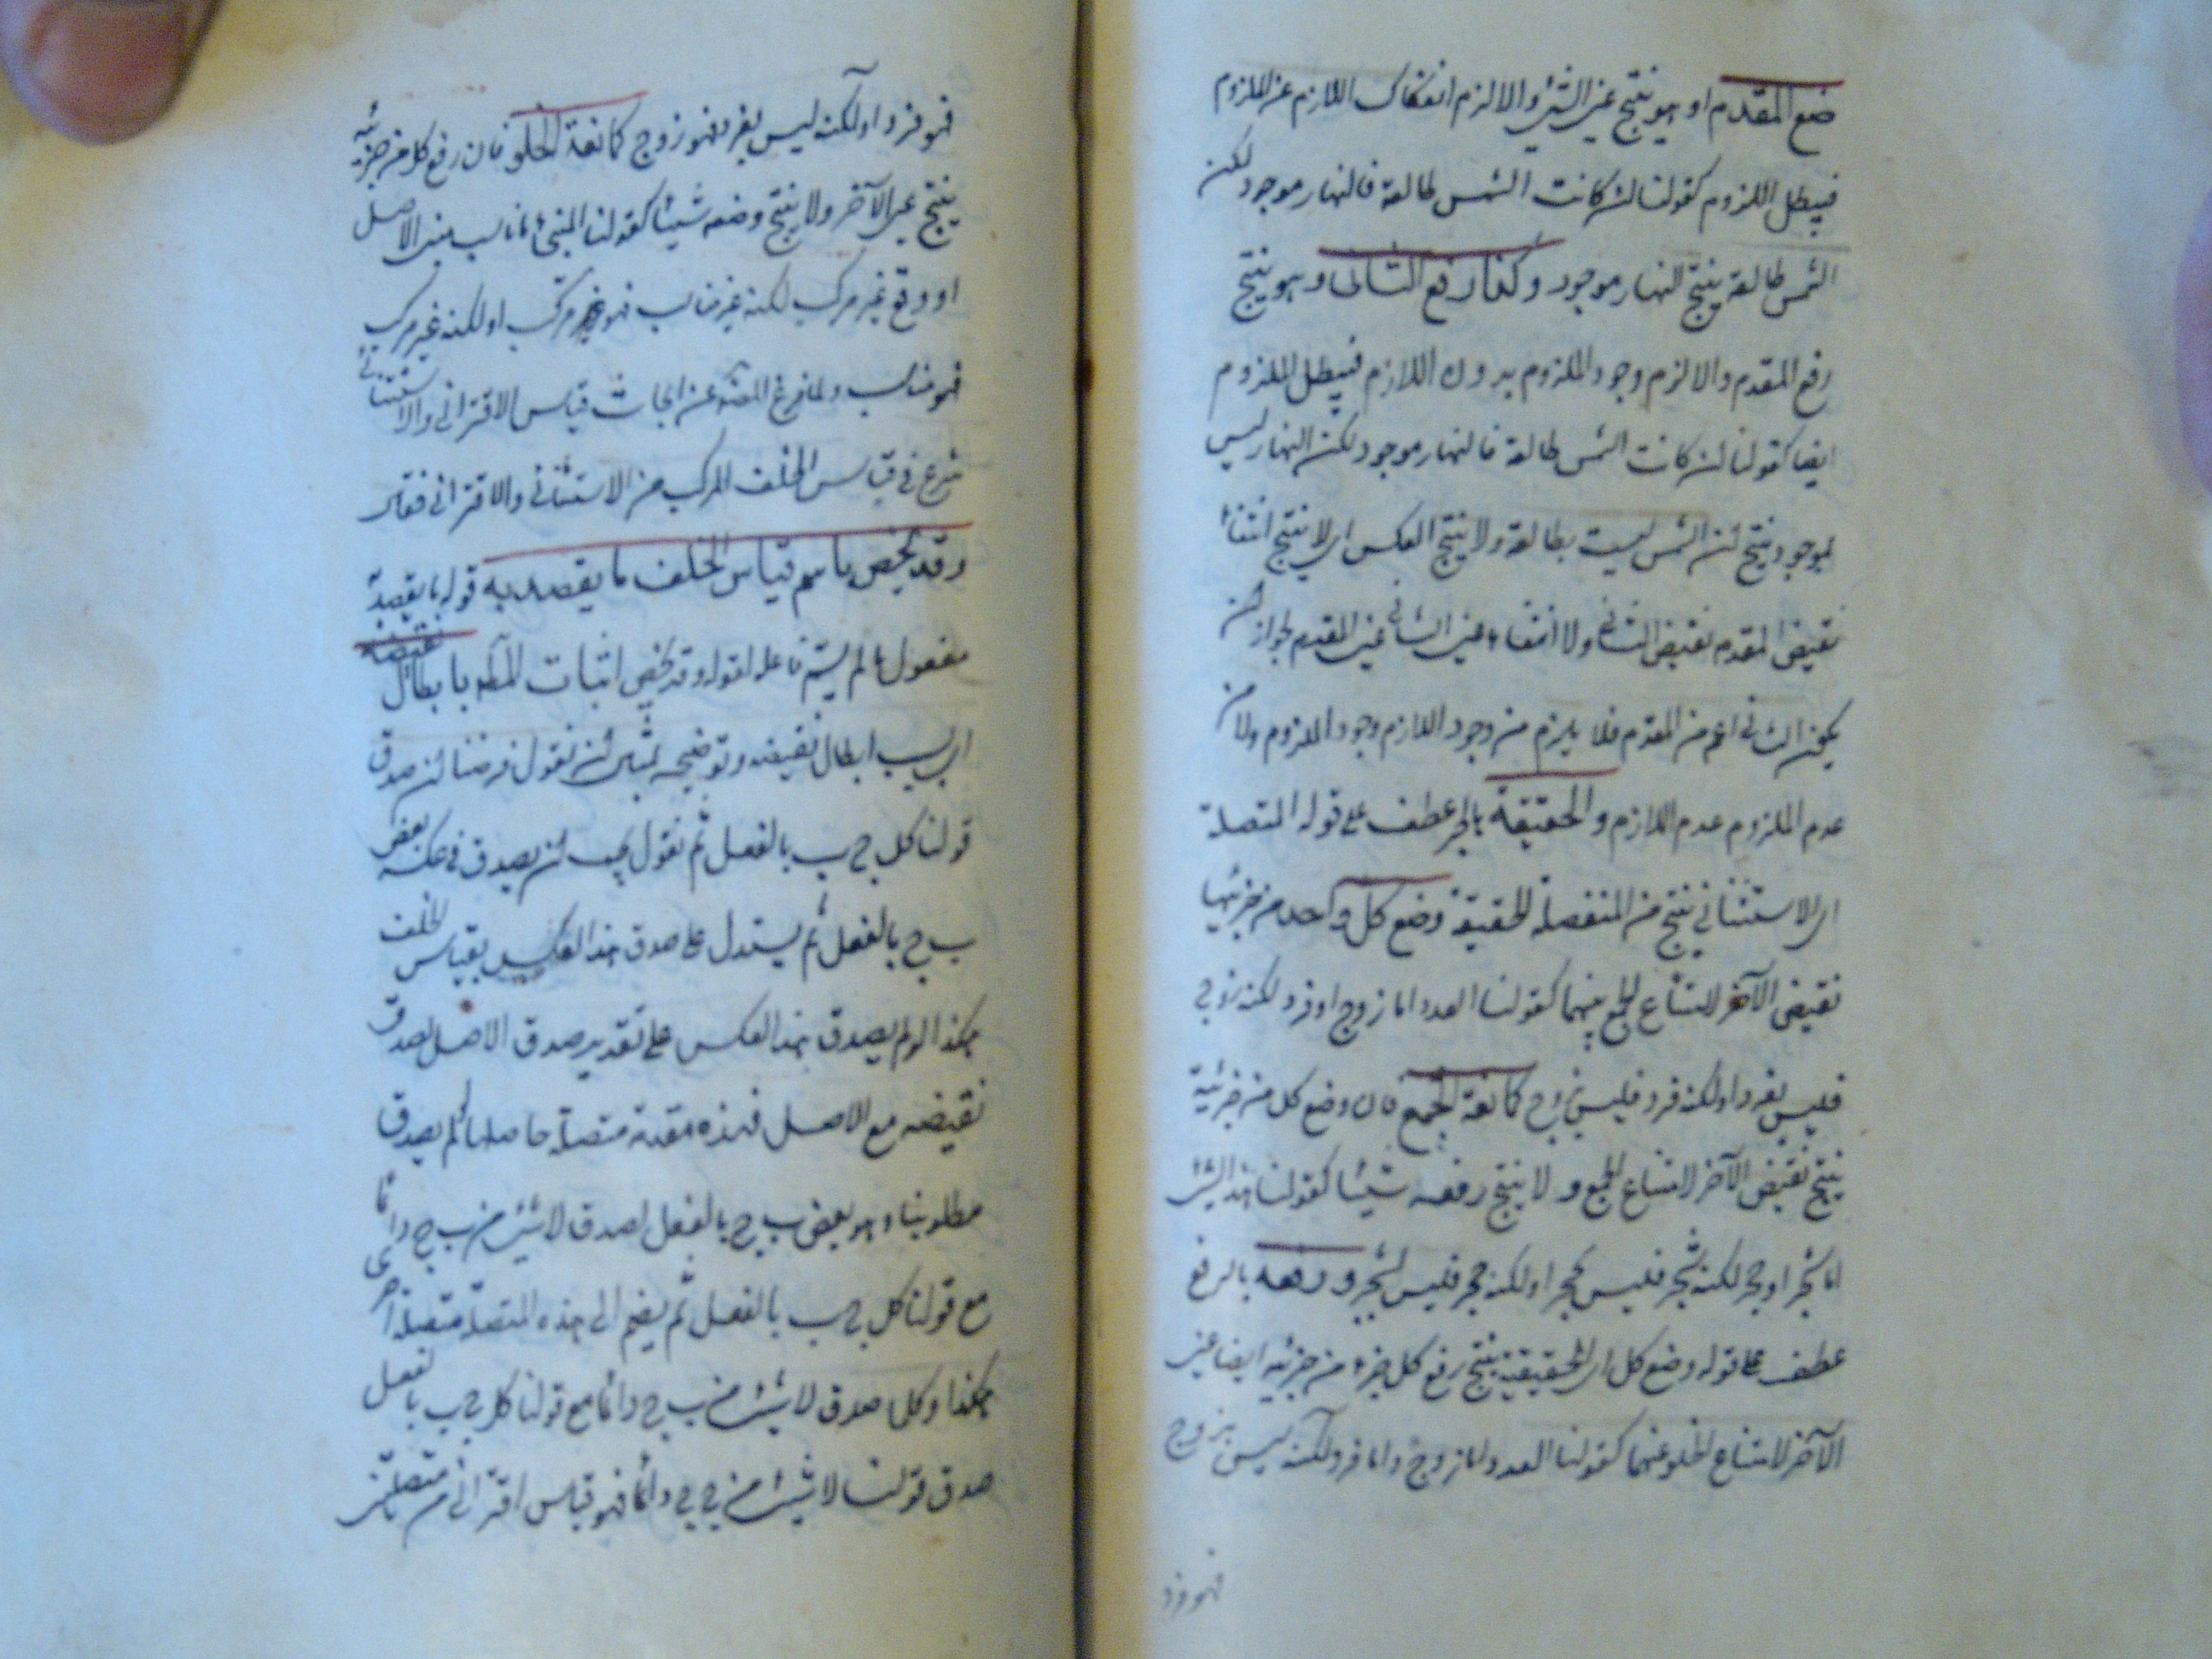 ضع المقدم او هو ينتج عين الشئ والا لزم انفكاك اللازم عن الملزوم
فيبطل اللزوم كقولنا ان كانت الشمس طالعة فالنهار موجود لكن
الشمس طالعة ينتج النهار موجود وكذا رفع التالى وهو ينتج
رفع المقدم والا لزم وجود الملزوم بدون اللازم فيبطل الملزوم
ايضا كقولنا ان كانت الشمس طالعة فالنهار موجود لكن النهار ليس
بموجود ينتج ان الشمس ليست بطالعة ولا ينتج العكس اى لا ينتج انتفاء
نقيض المقدم نقيض التالى ولا انتفاء عين التالى عين المقدم لجواز ان
يكون التالى اعم من المقدم فلا يلزم من وجود اللازم وجود الملزوم ولا من
عدم الملزوم عدم اللازم والحقيقة بالجر عطف على قوله المتصلة
اى الاستثنائى ينتج من المنفصلة الحقيقة وضع كل واحد من جزئيها
نقيض الآخر لامتناع الجمع بينهما كقولنا العدد اما زوج او فرد لكنه زوج
فليس بفرد او لكنه فرد فليس بزوج كمانعة الجمع فان وضع كل من جزئيه
ينتج نقيض الآخر لامتناع الجمع و لا ينتج رفعه شيئا كقولنا هذا الشئ
اما شجر او حجر لكنه شجر فليس بحجر او لكنه حجر فليس بشجر ورفعه بالرفع
عطف على قوله وضع كل اى الحقيقية ينتج رفع كل جزء من جزئيه ايضا عين
الآخر لامتناع الخلو عنهما كقولنا العدد اما زوج واما فرد لكنه ليس بزوج
فهو فرد
فهو فرد او لكنه ليس بفرد فهو زوج كمانعة الخلو فان رفع كل من جزئيه
ينتج عين الآخر ولا ينتج وضعه شيئا كقولنا المبنى اما ناسب مبنى الاصل
او وقع غير مركب لكنه غير مناسب فهو غير مركب او لكنه غير مركب
فهو مناسب ولما فرغ المصنف عن ابحاث قياس الاقترانى والاستثنائى
شرع فى قياس الخلف المركب من الاستثنائى والاقترانى فقال
وقد يخص باسم قياس الخلف ما يقصد به قوله ما يقصد به
مفعول ما لم يسم فاعله لقوله وقد يخص اثبات المط بابطال نقيضه
اى بسبب ابطال نقيضه وتوضيحه بمثال ان نقول فرضنا ان صدق
قولنا كل ج ب بالفعل ثم نقول يجب ان يصدق فى عكسه بعض
ب ج بالفعل ثم يستدل على صدق هذا العكس بقياس الخلف
هكذا لو لم يصدق هذا العكس على تقدير صدق الاصل لصدق
نقيضه مع الاصل فهذه مقدمة متصلة حاصلها لو لم يصدق
مطلوبنا وهو بعض ب ج بالفعل لصدق لا شئ من ب ج دائما
مع قولنا كل ج ب بالفعل ثم يضم الى هذه المتصلة متصلة اخرى
هكذا وكلما صدق لا شئ من ب ج دائما مع قولنا كل ج ب بالفعل
صدق قولنا لا شئ من ج ج دائما فهو قياس اقترانى من متصلتين